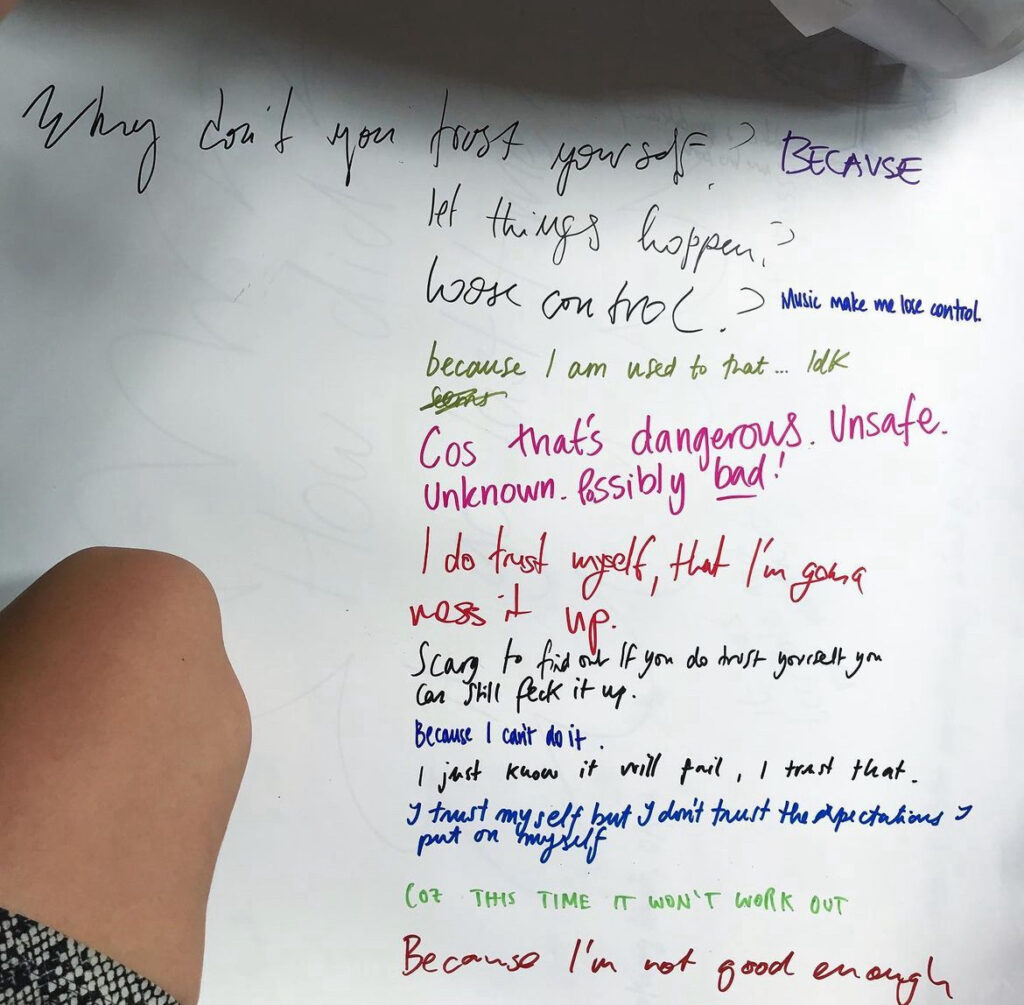 Why don't you trust yourself? BECAUSE
let things happen?
loose control? Music make me lose control.
because I am used to that... Idk
Cos that's dangerous. Unsafe.
Unknown. Possibly bad!
I do trust myself, that I'm gona
mess it up.
Scary to find out If you do trust yourself you
can still feck it up.
Because I can't do it.
I just know it will fail, I trust that.
I trust myself but I don't trust the expectations I
put on myself
COZ THIS TIME IT WON'T WORK OUT
Because I'm not good enough